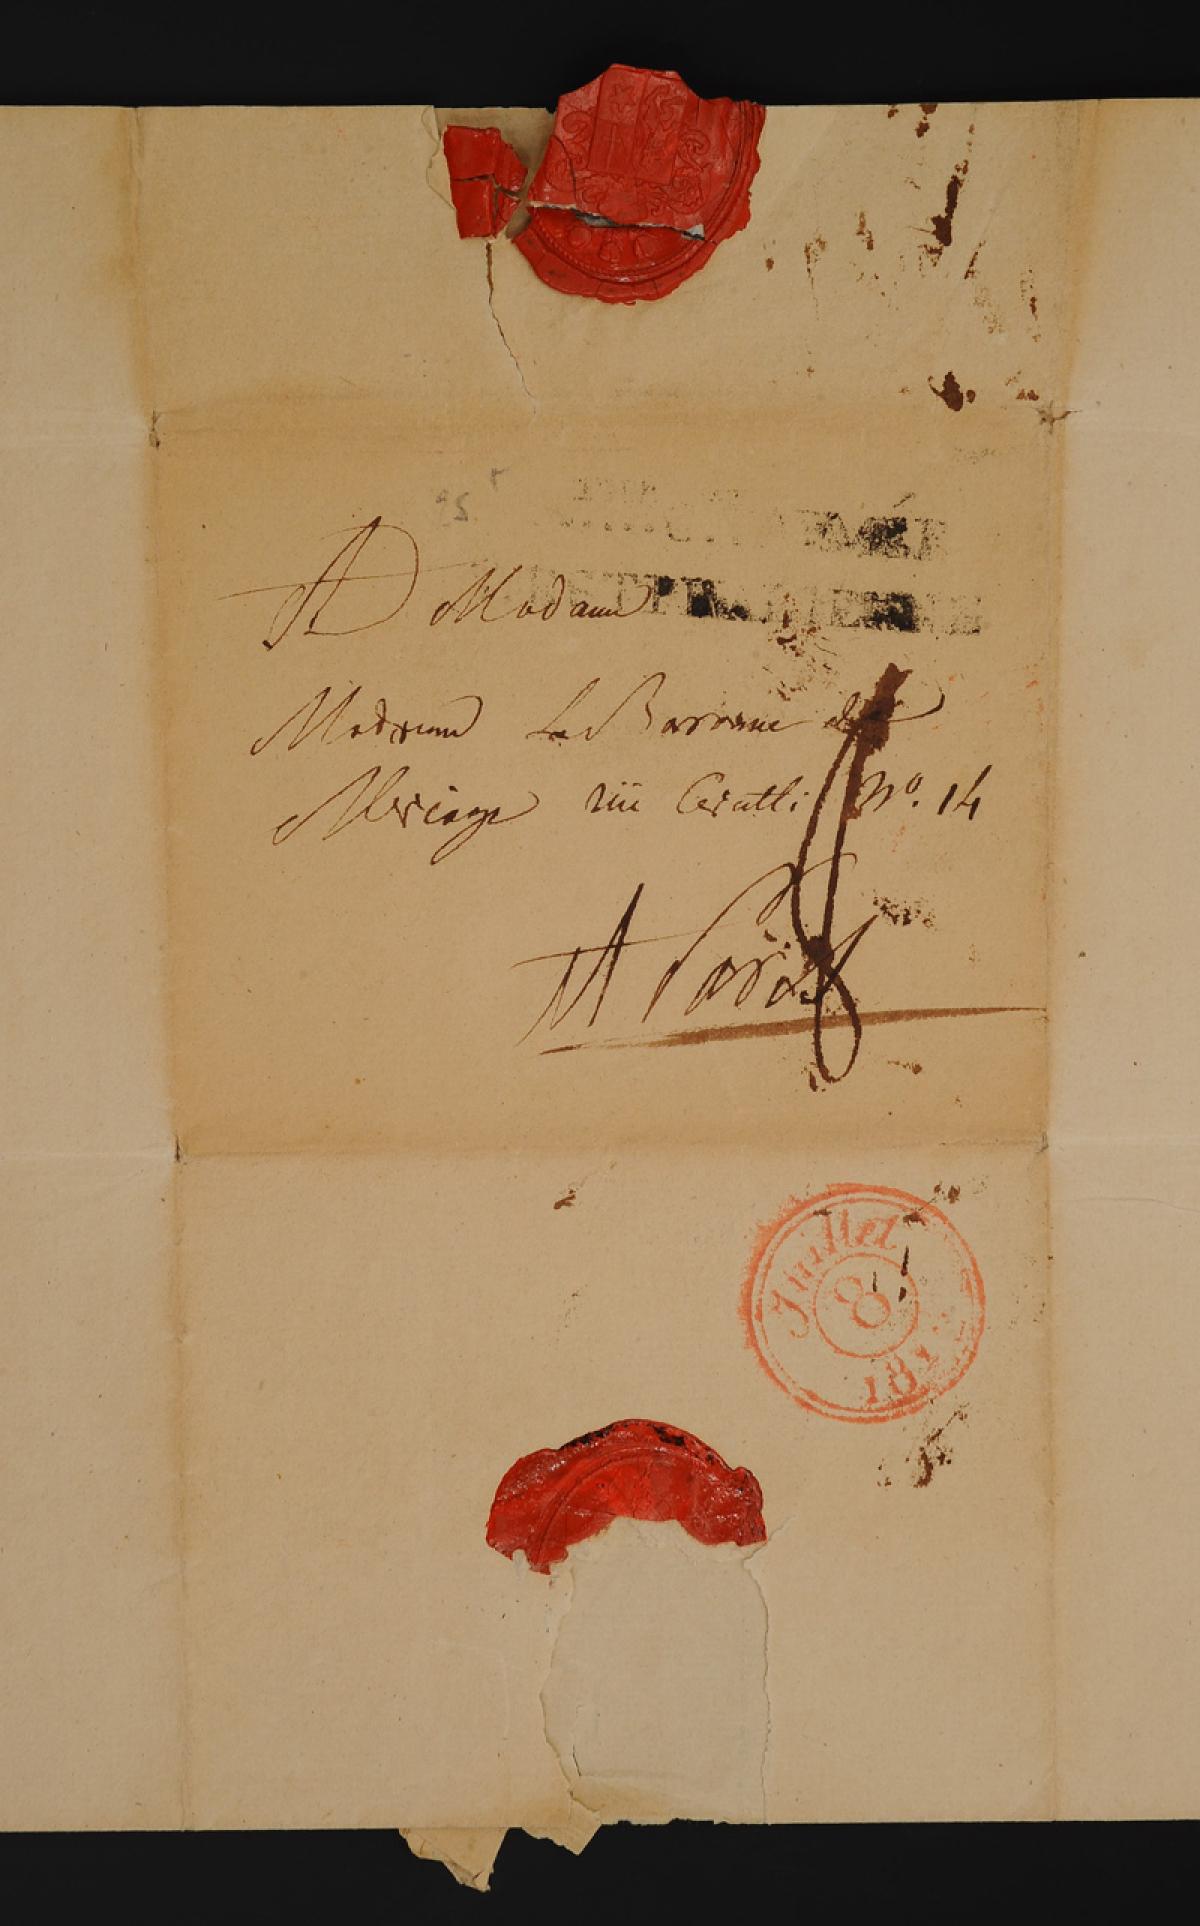 A Madame
Madame La Baronne de
Meriage rüe Cerutti No. 14
A Paris
Juillet
8
181